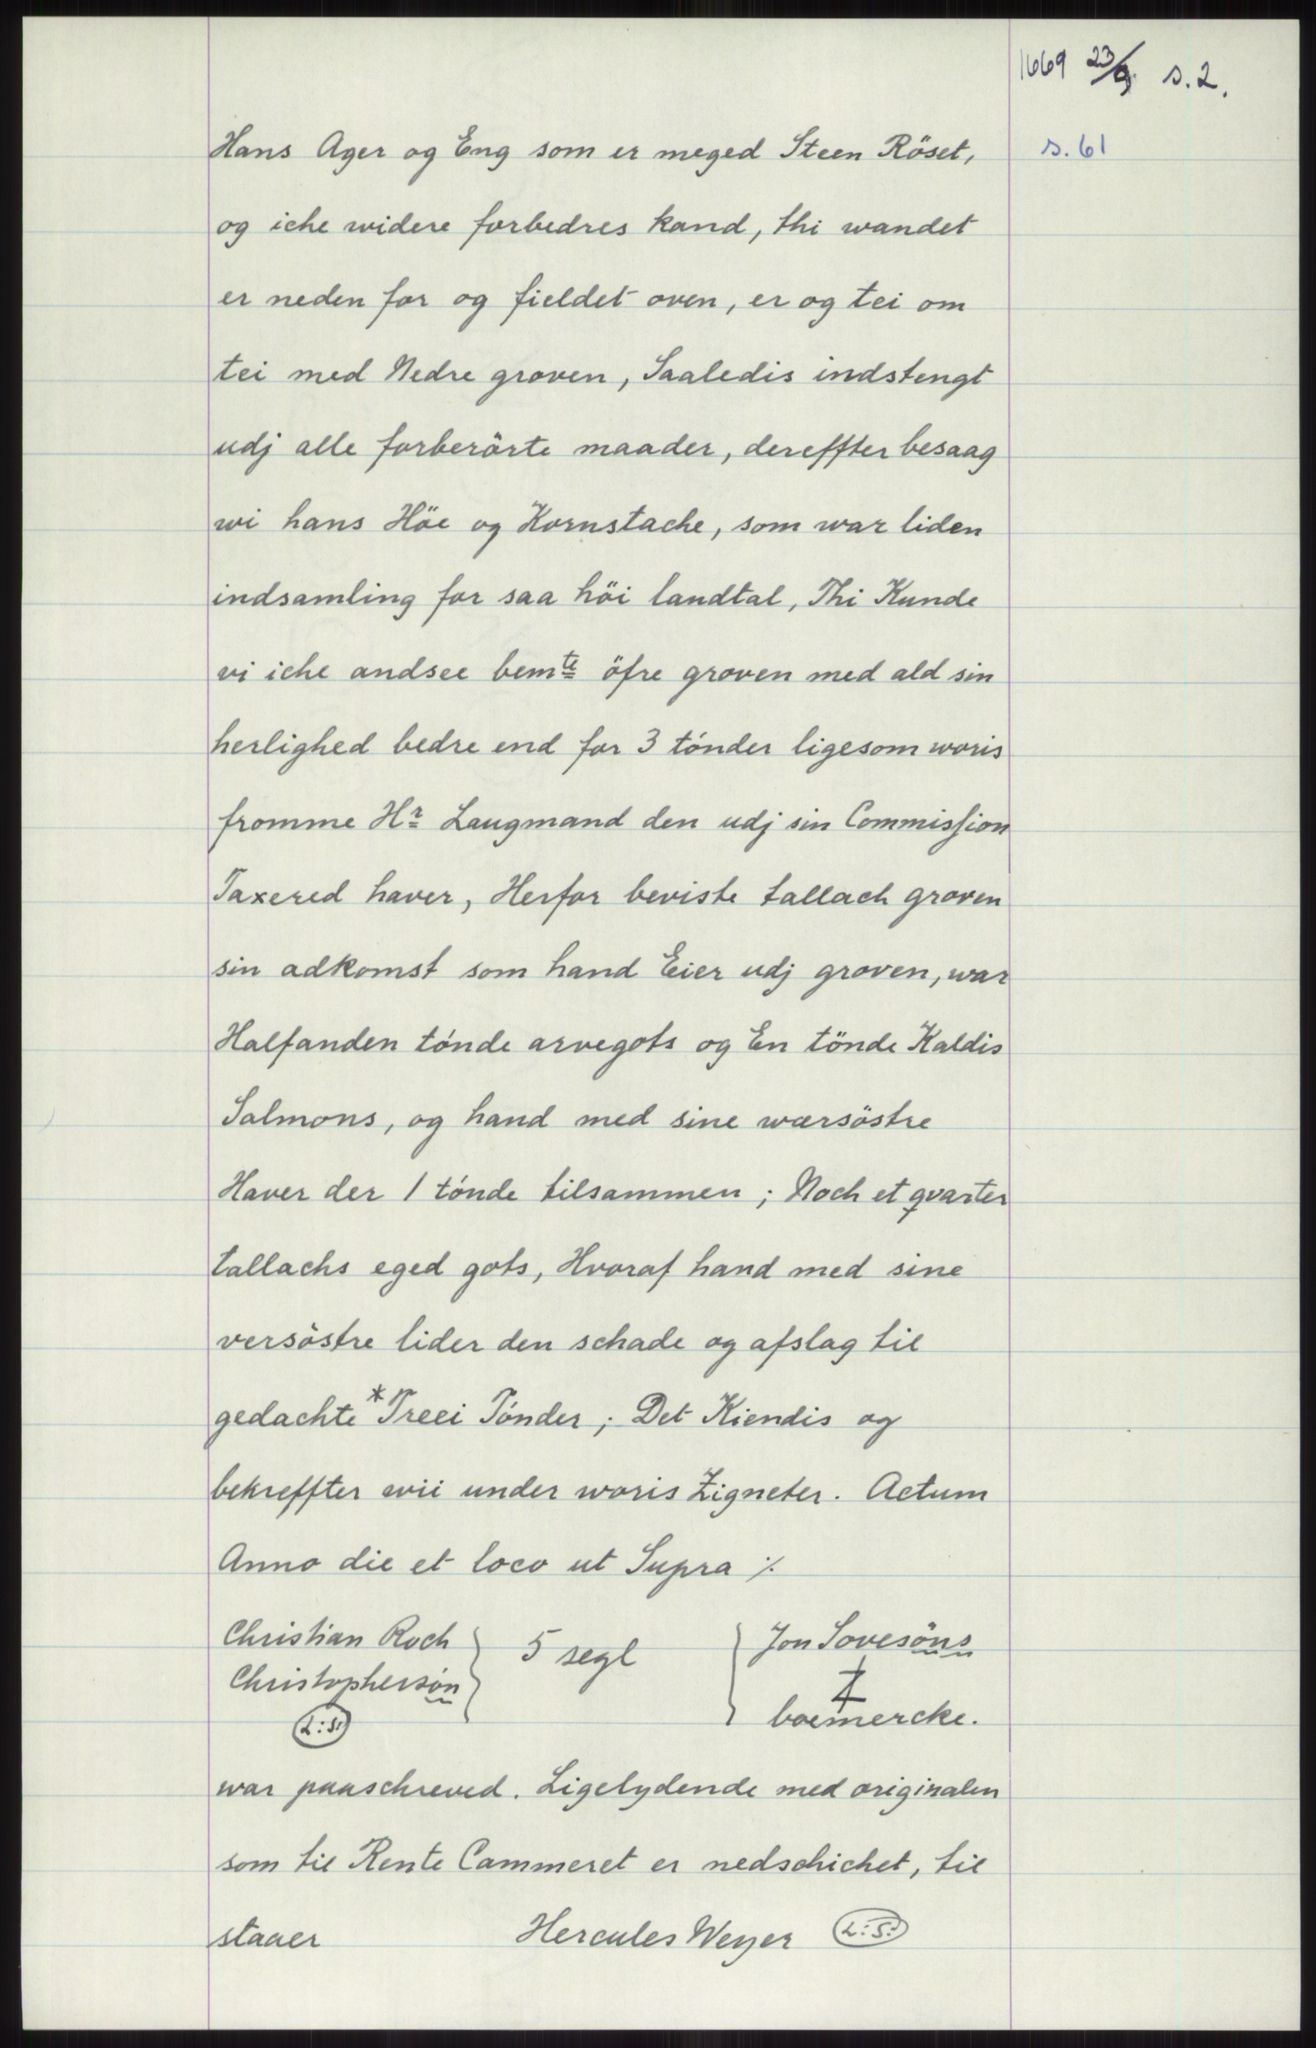 1669 23/9 s. 2.
s. 61
Hans Ager og Eng som er meged Steen Röset,
og iche widere forbedres kand, thi wandet
er neden for og fieldet oven, er og tei om
tei med Nedre groven, Saaledis indstengt
udj alle forberörte maader, dereffter besaag
wi hans Höe og Kornstache, som war liden
indsamling for saa höi landtal, Thi Kunde
vi iche andsee bemte öfre groven med ald sin
herlighed bedre end for 3 tónder ligesom woris
fromme Hr Laugmand den udj sin Commission
Taxered haver, Herfor beviste tallach groven
sin adkomst som hand Eier udj groven, war
Halfanden tónde arvegots og En tönde Kaldis
Salmons, og hand med sine wersöstre
Haver der 1 tónde tilsammen; Noch et qvarter
tallachs eged gots, Hvoraf hand med sine
versöstre lider den schade og afslag til
gedachte *Treei Tónder; Det Kiendis og
bekreffter wii under woris Zigneter. Actum
Anno die et loco ut Supra ·/.
Christian Roch } 5 segl { Jon Sovesöns
Christophersön
L:S: boemercke.
war paaschreved. Ligelydende med originalen
som til Rente Cammeret er nedschichet, til
staaer Hercules Weyer L:S: